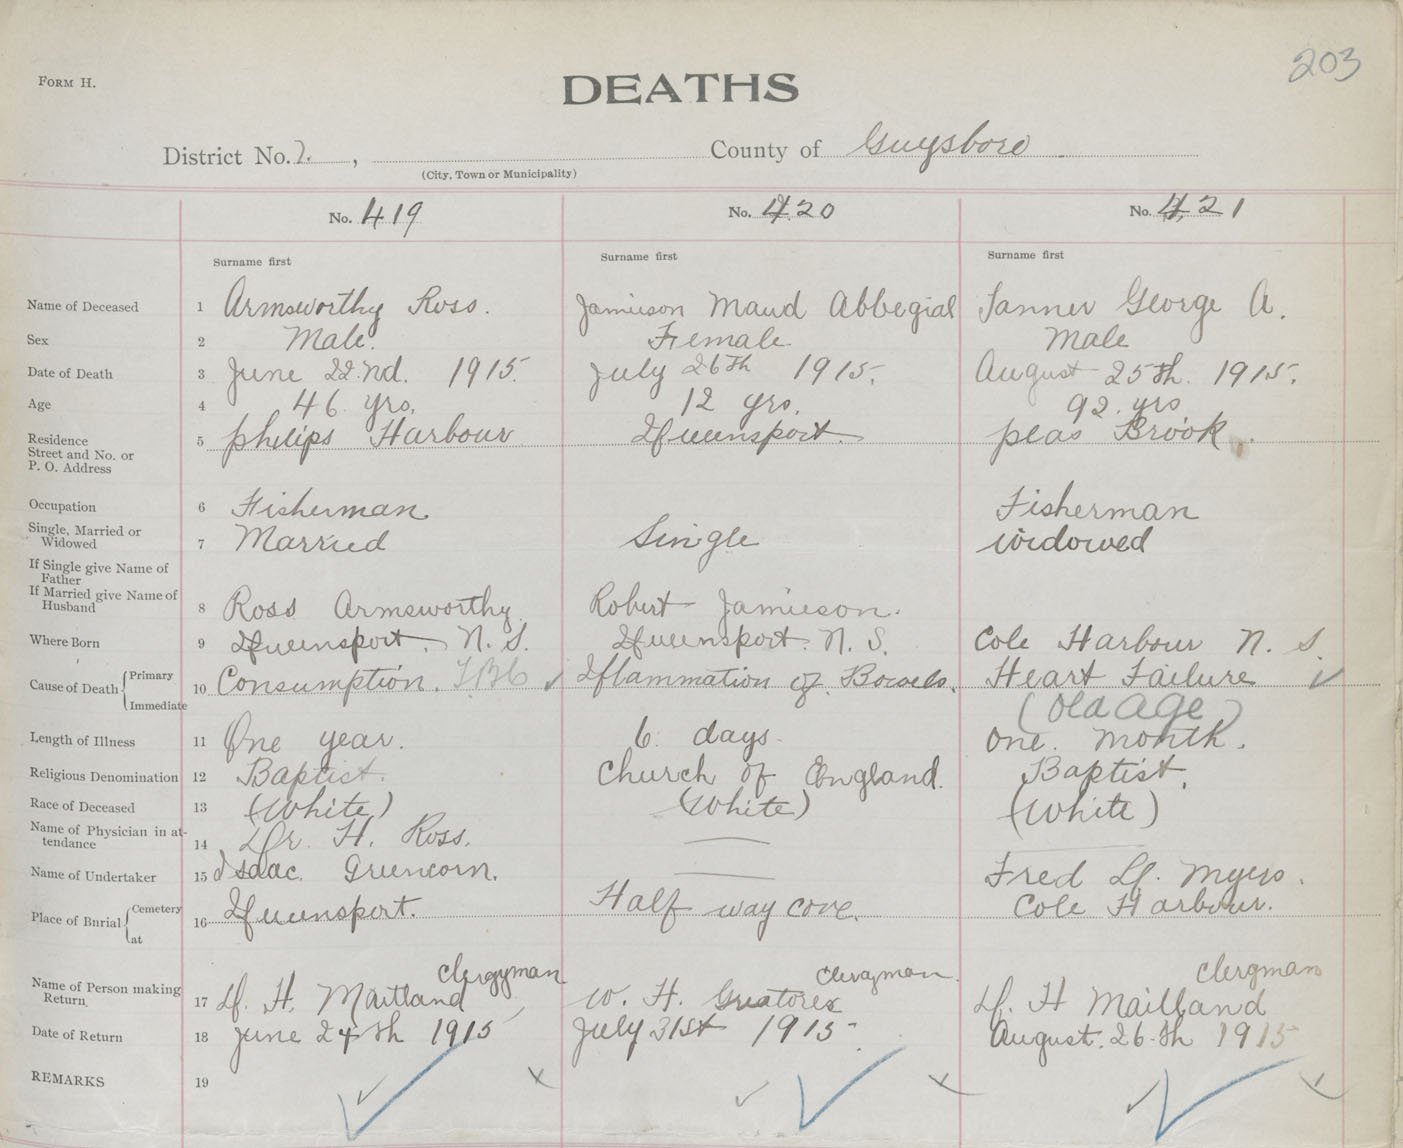 203
FORM H.
DEATHS
District No. 2. , County of Guysboro
(City, Town or Municipality)
No. 419 No. 420 No. 421
Surname first Surname first Surname first
Name of Deceased 1 Armsworthy Ross. Jamieson Maud Abbegial Tanner George A.
Sex 2 Male. Female. Male
Date of Death 3 June 22nd. 1915. July 26th 1915. August 25th. 1915.
Age 4 46 yrs. 12 yrs. 92 yrs
Residence Street and No. or P. O. Address 5 philips Harbour Queensport. peas Brook.
Occupation 6 Fisherman Fisherman
Single, Married or Widowed 7 Married Single widowed
If Single give Name of Father
If Married give Name of Husband 8 Ross Armsworthy Robert Jamieson.
Where Born 9 Queensport. N. S. Queensport. N. S. Cole Harbour N. S.
Cause of Death { Primary Immediate 10 Consumption. TBC Iflammation of Bowels. Heart Failure
(old age)
Length of Illness 11 One year. 6 days. one. month.
Religious Denomination 12 Baptist. Church of England. Baptist.
Race of Deceased 13 (White) (White) (White)
Name of Physician in attendance 14 Dr. H. Ross.
Name of Undertaker 15 Isaac. Greencorn. Fred Myers.
Place of Burial { Cemetery at 16 Queensport. Half way cove. Cole Harbour.
Clergyman Clergman. Clergman
Name of Person making Return 17 H. Maitland W. H. Greatorex H Maitland
Date of Return 18 June 24th 1915 July 31st 1915 August. 26th 1915
REMARKS 19